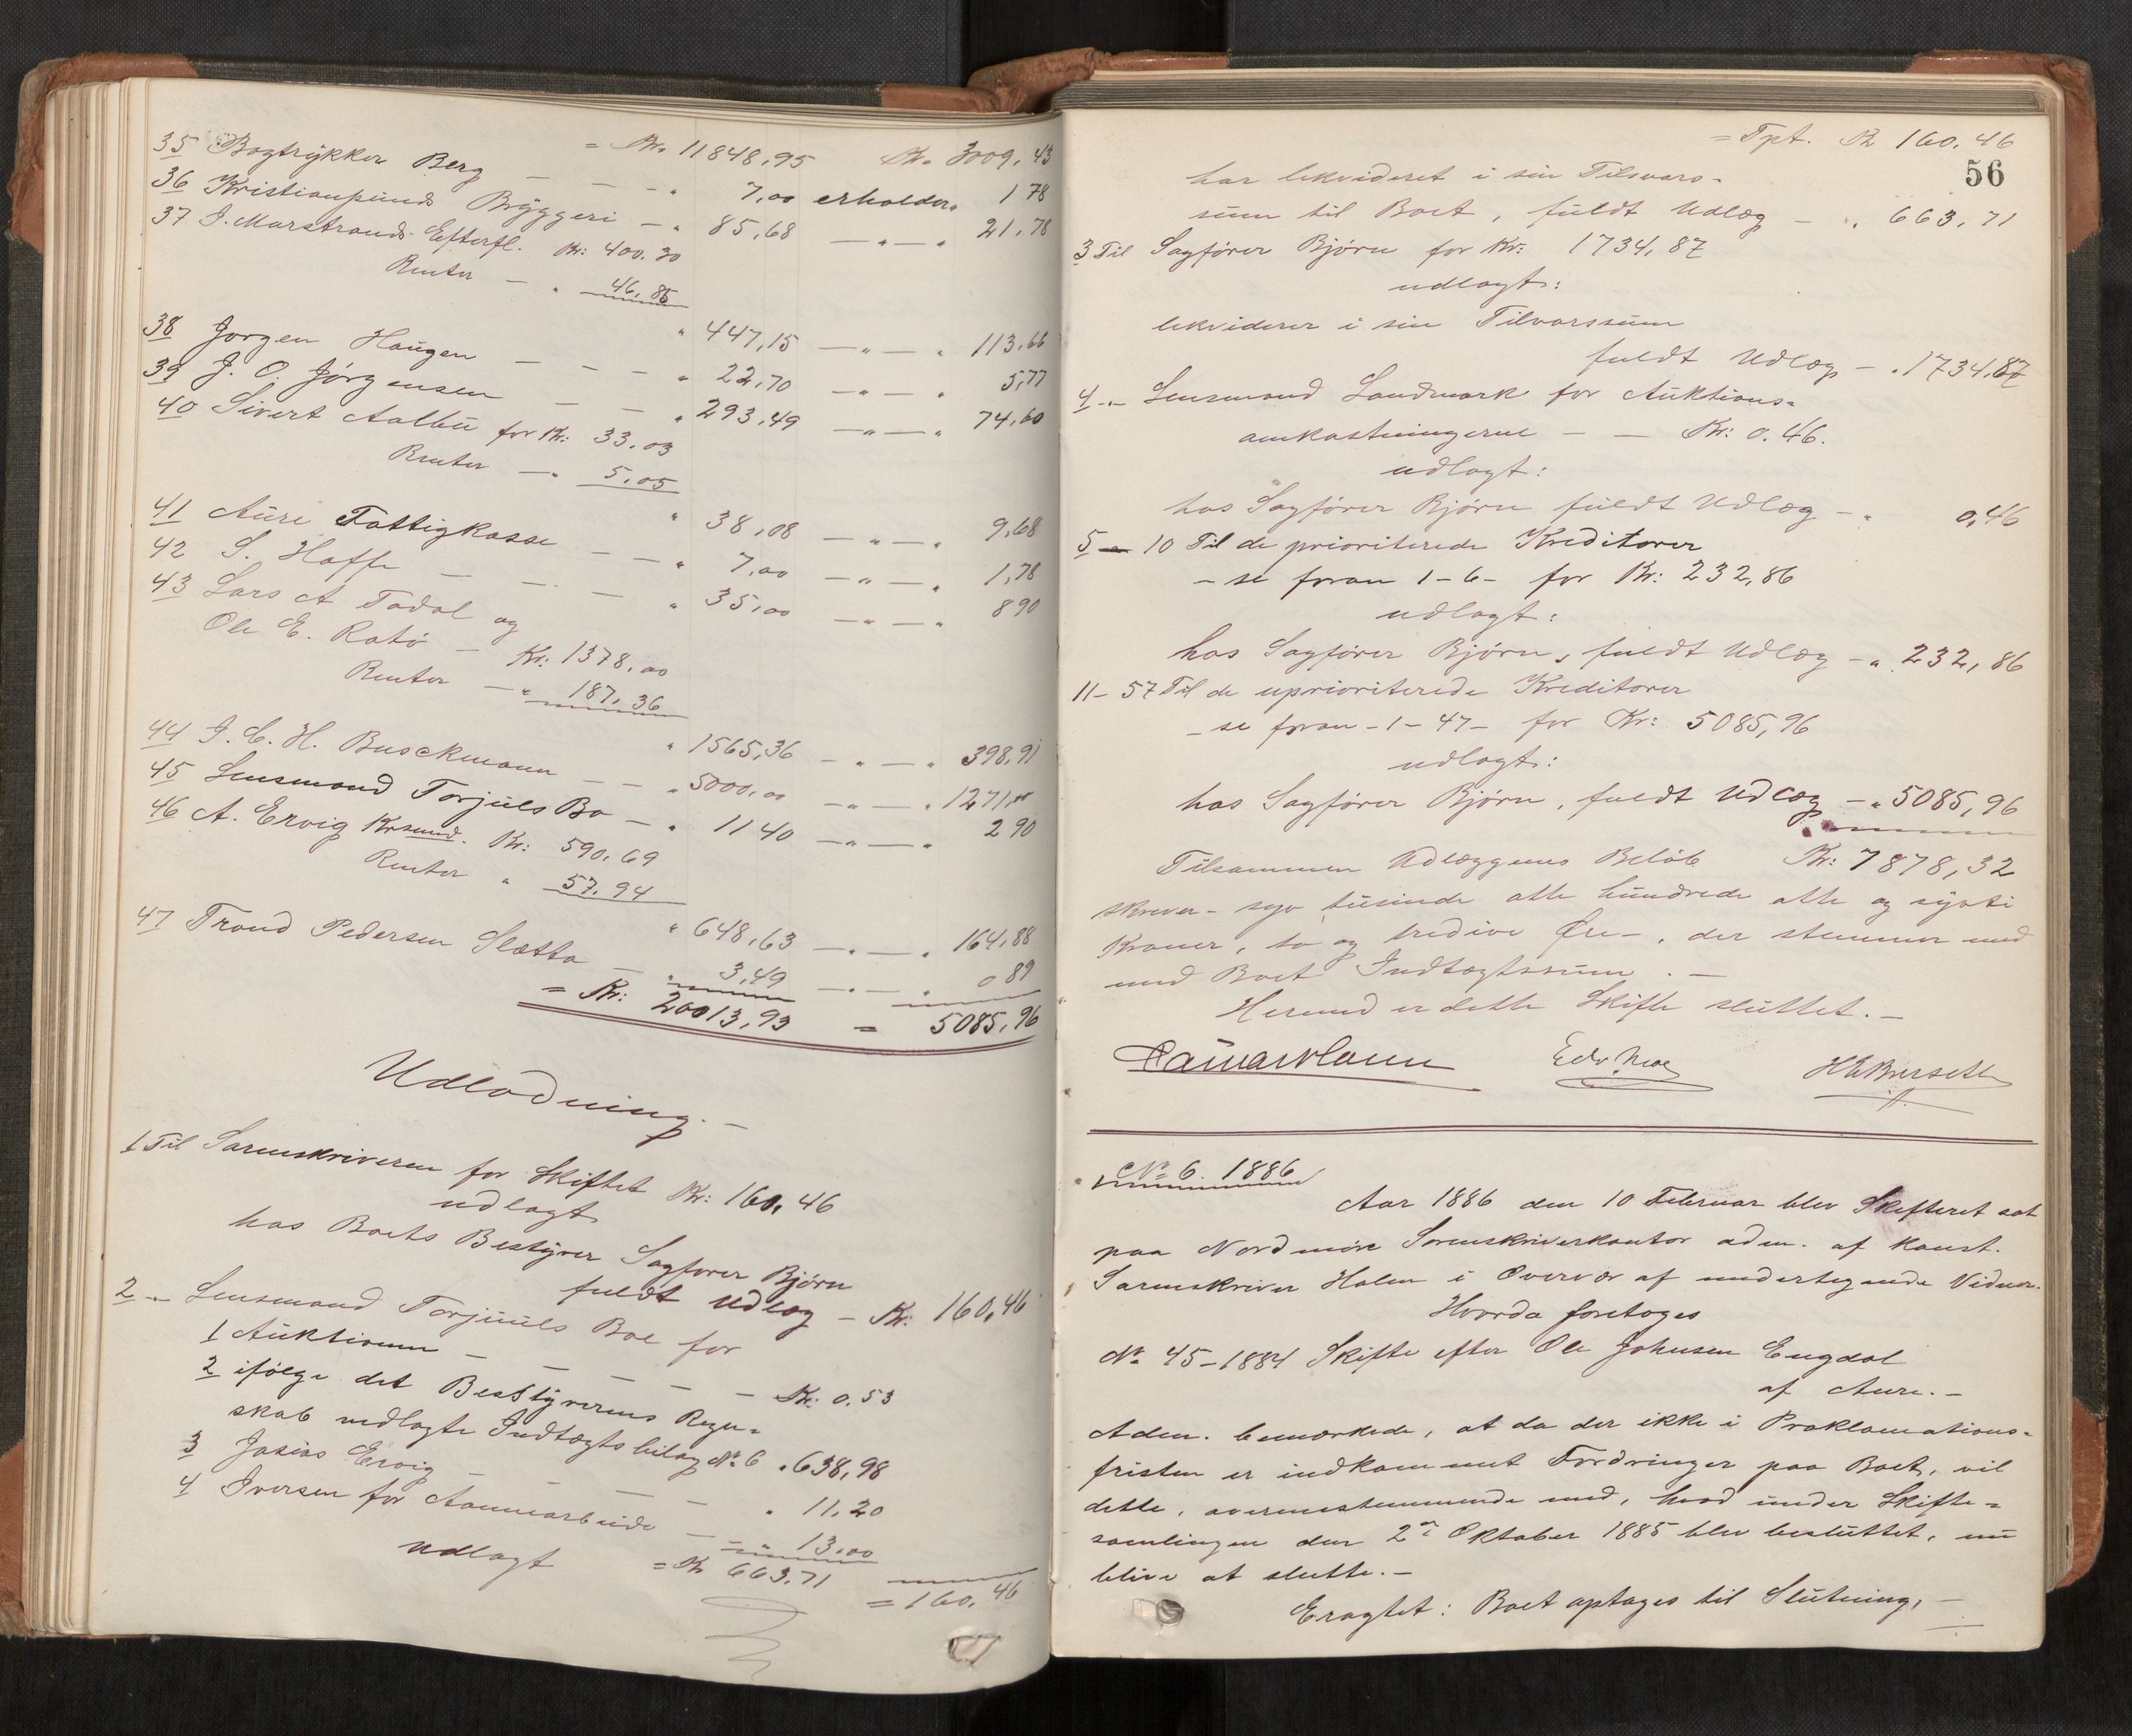 = Kr. 11848,95 Kr. 3009,43
35 Bogtrykker Berg — — — " 7,00 erholder " 1 78
36 Kristiansunds Bryggeri — " 85,68 — " — " 21,78
37 J. Marstrands Efterfl. Kr: 400.30
Renter — " 46,85
" 447,15 — " — " 113,66
38 Jørgen Haugen — — — " 22,70 — " — " 5,77
39 J. O. Jørgensen — — " 293,49 — " — " 74,60
40 Sivert Aalbu for Kr: 33.03
Renter — " 5,05
" 38,08 — " — " 9,68
41 Aure Fattigkasse — — " 7,00 — " — " 1,78
42 S. Hoff — — — " 35,00 — " — " 8 90
43 Lars A Todal og
Ole E. Rotø — Kr: 1378,00
Renter — " 187,36
" 1565,36 — " — " 398,91
44 J. C. H. Buschmann — — " 5000,00 — " — " 1271,00
45 Lensmand Torjuls Bo — " 11 40 — " — " 2 90
46 A. Ervig Krsund. Kr: 590,69
Renter " 57,94
" 648,63 — " — " 164,88
47 Trond Pedersen Sletta — " 3,49 — " — " 0 89
= Kr: 20013,93 = 5085,96
Udlodning. —
1 Til Sorenskriveren for Skiftet Kr: 160,46
udlagt
hos Boets Bestyrer Sagfører Bjørn
fuldt Udlæg — Kr: 160,46
2 " — Lensmand Torjuuls Boe for
1 Auktionen — — — — — Kr: 0.53
2 ifølge det Bestyrerens Regn=
skab vedlagte Indtægtsbilag No 6 " 638,98
3 Josias Ervig — — — — " 11,20
4 Iversen for Aannearbeide — — " 13,00
udlagt = Kr 663,71 = 160,46
= Tpt. Kr 160,46
56
har likvideret i sin Tilsvars=
sum til Boet, fuldt Udlæg — " 663,71
3 Til Sagfører Bjørn for Kr: 1734,87
udlagt:
likviderer i sin Tilvarssum
fuldt Udlæg — " 1734,87
4 " — Lensmand Landmark for Auktions=
omkostningerne — — Kr: 0.46.
udlagt:
hos Sagfører Bjørn fuldt Udlæg — " 0,46
5 — 10 Til de prioriterede Kreditorer
— se foran 1 - 6 — for Kr: 232,86
udlagt:
hos Sagfører Bjørn, fuldt Udlæg — " 232,86
11 — 57 Til de uprioriterede Kreditorer
— se foran — 1 — 47 — for Kr: 5085,96
udlagt:
hos Sagfører Bjørn, fuldt Udlæg — " 5085,96
Tilsammen Udlæggenes Beløb Kr: 7878,32
skriver — syv tusinde otte hundrede otte og sytti
Kroner, to og tredive Øre —, der stemmer med
med Boet Indtægtssum. —
Hermed er dette Skifte sluttet. —
Edv. Moe
H Brusett
No 6. 1886
Aar 1886 den 10 Februar blev Skifteret sat
paa Nordmøre Sorenskriverkontor adm. af konst.
Sorenskriver Holm i Overvær af undertegnede Vidner.
Hvorda foretoges
No 45 — 1884 Skifte efter Ole Johnsen Engdal
af Aure. —
Adm. bemærkede, at da der ikke i Proklamations=
fristen er indkommet Fordringer paa Boet, vil
dette, overensstemmende med, hvad under Skifte=
samlingen den 2den Oktober 1885 blev besluttet, nu
blive at slutte. —
Eragtet: Boet optages til Slutning, —